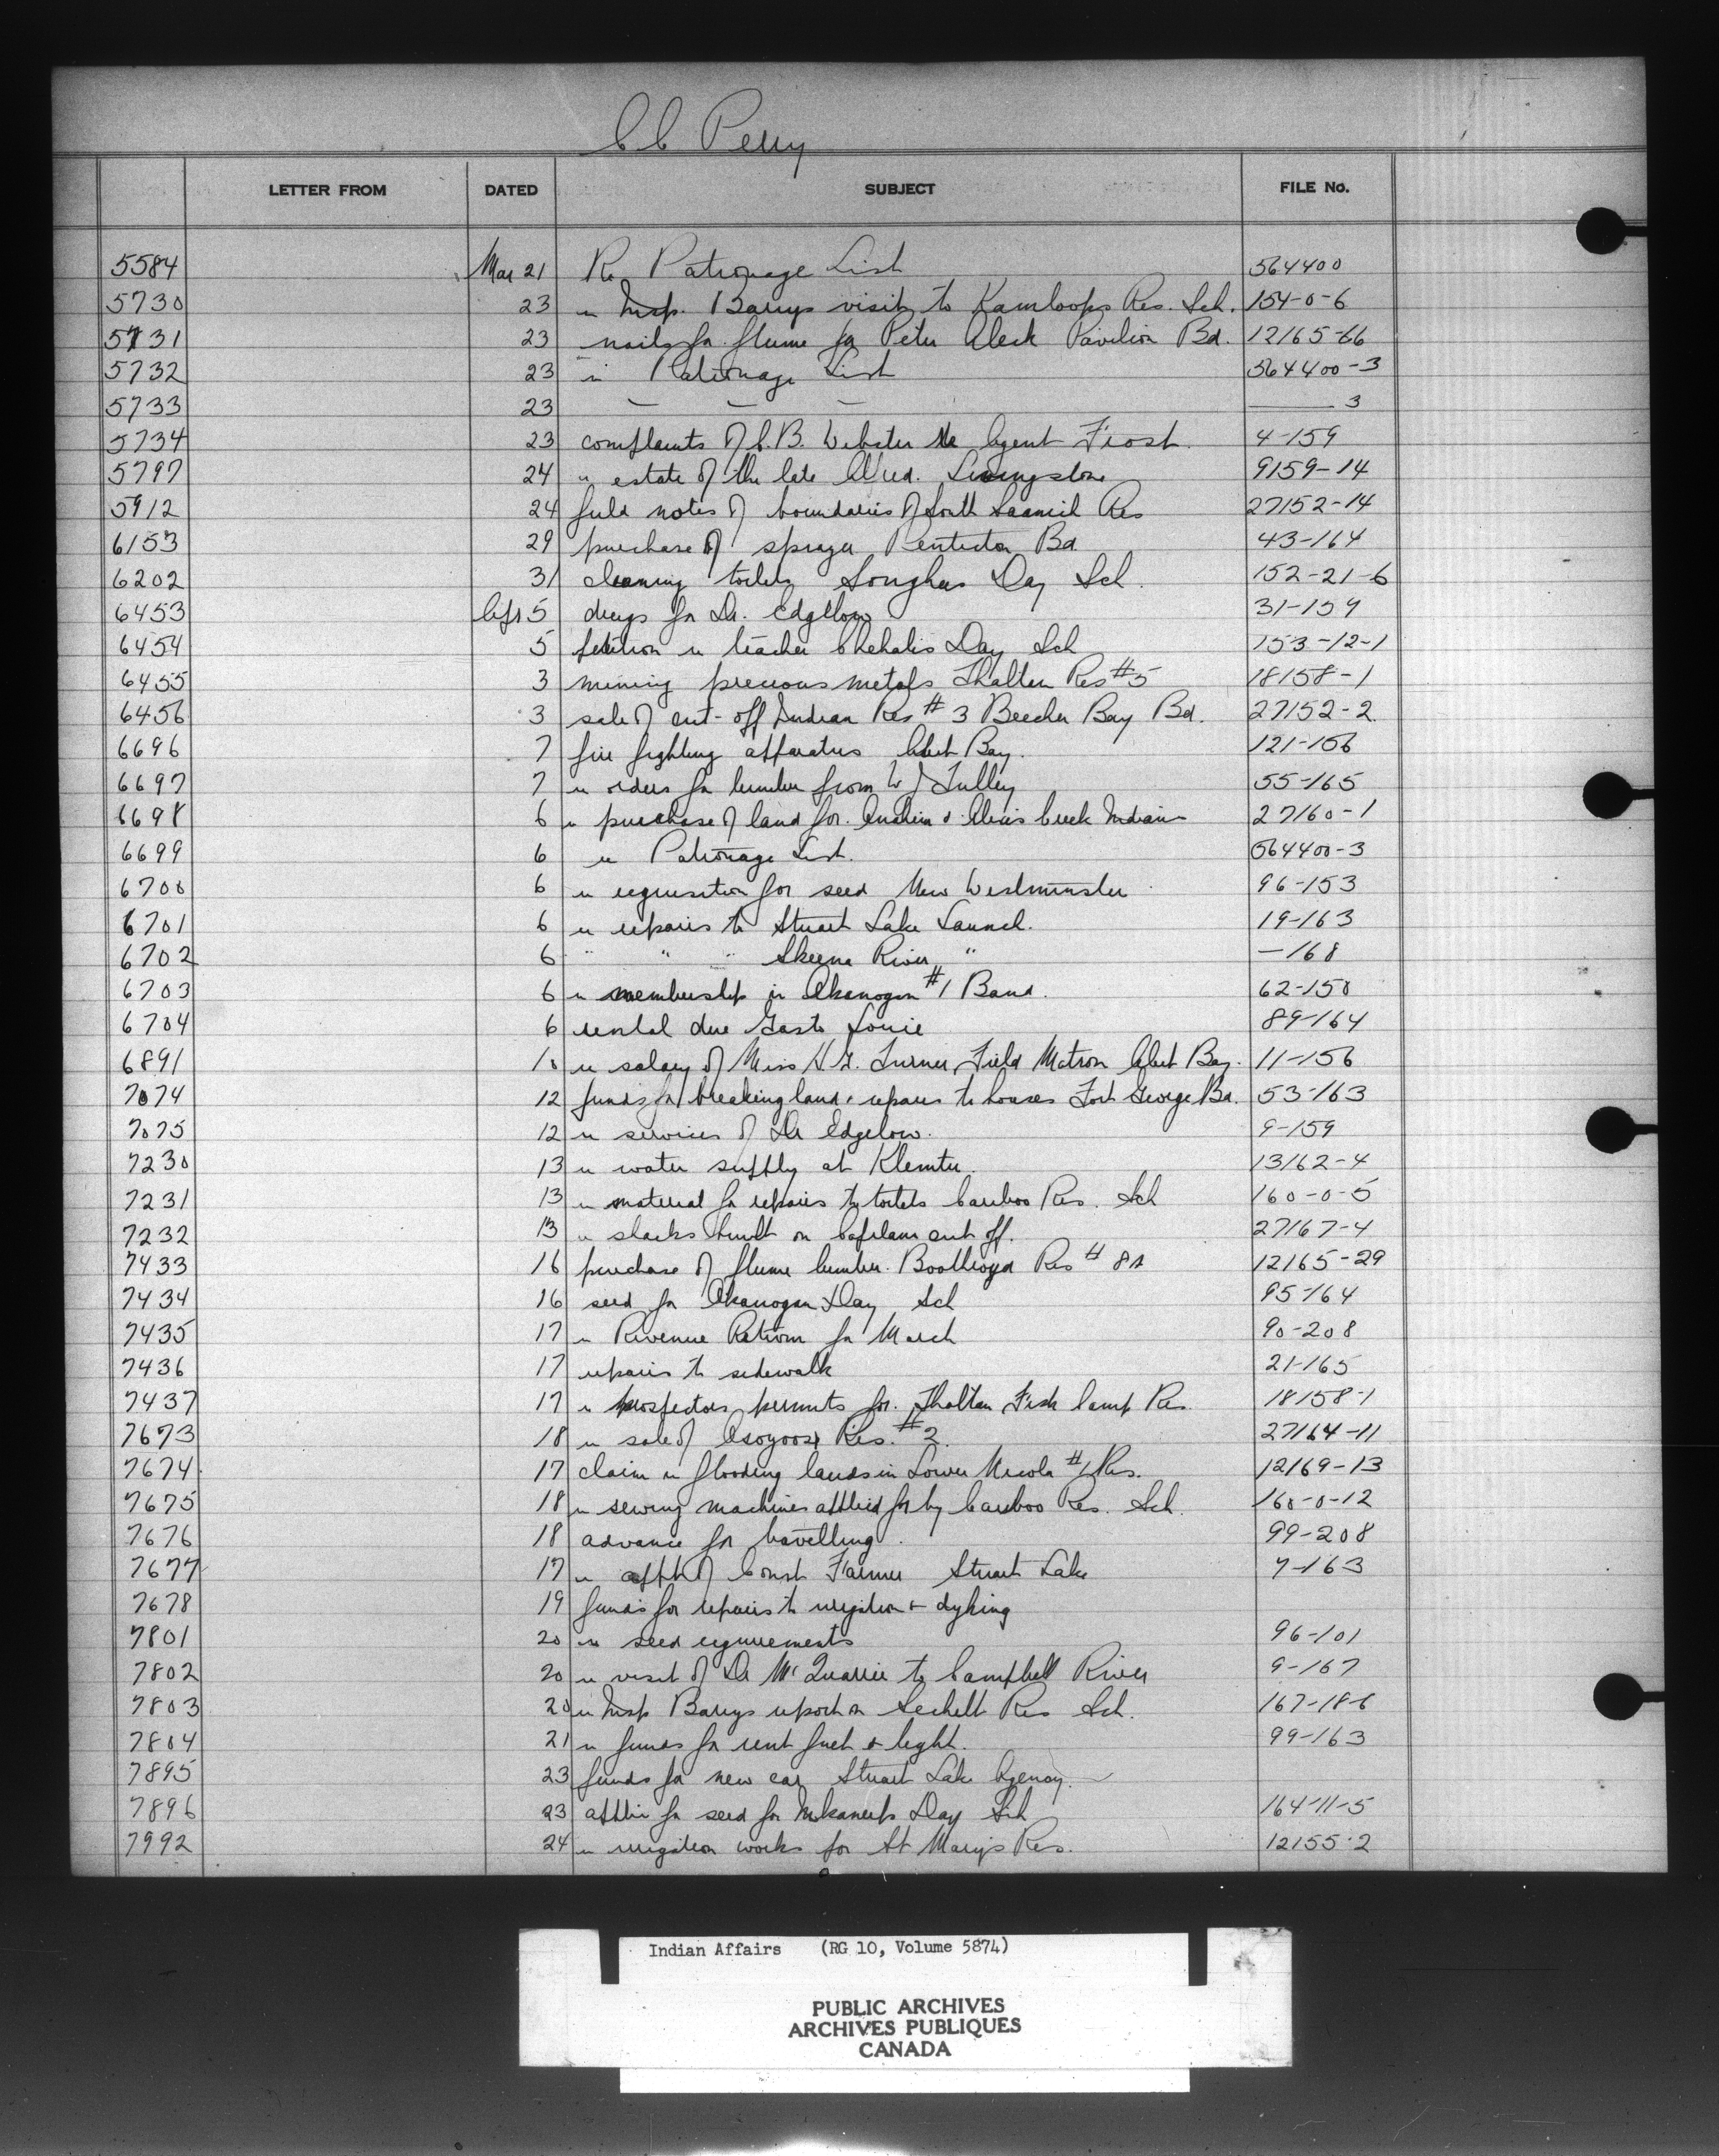 C C Perry
LETTER FROM DATED SUBJECT FILE No.
5584 Mar 21 Re Patronage List 564400
5730 23 re Insp. Barrys visit to Kamloops Res. Sch. 154-0-6
5731 23 nails for flume for Peter Aleck Pavilion Bd. 12165-66
5732 23 re Patronage List 564400-3
5733 23 — — — —— 3
5734 23 complaints of C.B. Webster re Agent Frost. 4-159
5797 24 re estate of the late Alfred. Livingstone 9159-14
5912 24 field notes of boundaries of South Saanich Res 27152-14
6153 29 purchase of sprayer Penticton Bd 43-164
6202 31 cleaning toilets Songhees Day Sch. 152-21-6
6453 Apr 5 drugs for Dr. Edgelow 31-159
6454 5 petition re teacher Chehalis Day Sch 153-12-1
6455 3 mining precious metals Thaltan Res #5 18158-1
6456 3 sale of cut-off Indian Res # 3 Beecher Bay Bd. 27152-2
6696 7 fire fighting apparatus Alert Bay. 121-156
6697 7 re orders for lumber from W J Tulley 55-165
6698 6 re purchase of land for Anahim & Alexis Creek Indians 27160-1
6699 6 re Patronage List. 564400-3
6700 6 re requisition for seed New Westminster 96-153
6701 6 re repairs to Stuart Lake Launch. 19-163
6702 6 " " " Skeena River " —168
6703 6 re membership in Okanogan #1 Band. 62-150
6704 6 rental due Louie 89-164
6891 10 re salary of Miss H.G. Turner, Field Matron Alert Bay. 11-156
7074 12 funds for breaking land & repairs to houses Fort George Bd. 53-163
7075 12 re services of Dr Edgelow. 9-159
7230 13 re water supply at Klemtu. 13162-4
7231 13 re material for repairs to toilets Cariboo Res. Sch 160-0-5
7232 13 re shacks built on Capilano cut off. 27167-4
7433 16 purchase of flume lumber. Boothroyd Res # 8A 12165-29
7434 16 seed for Okanogan Day Sch 95-164
7435 17 re Revenue Return for March 90-208
7436 17 repairs to sidewalk 21-165
7437 17 re prospectors permits for. Thaltan Fish Camp Res. 18158-1
7673 18 re sale of Osoyoos Res. #2. 27164-11
7674 17 claim re flooding lands in Lower Nicola #1 Res. 12169-13
7675 18 re sewing machines applied for by Cariboo Res. Sch. 160-0-12
7676 18 advance for travelling. 99-208
7677 17 re appt of Const Farmer Stuart Lake 7-163
7678 19 funds for repairs to irrigation & dyking
7801 20 re seed requirements 96-101
7802 20 re visit of Dr McQuarrie to Campbell River 9-167
7803 20 re Insp Barrys report on Sechelt Res Sch. 167-18-6
7804 21 re funds for rent fuel & light. 99-163
7895 23 funds for new car Stuart Lake Agency.
7896 23 applic for seed for Inkaneep Day Sch 164-11-5
7992 24 re irrigation works for St Marys Res. 12155-2
Indian Affairs (RG 10, Volume 5874)
PUBLIC ARCHIVES
ARCHIVES PUBLIQUES
CANADA